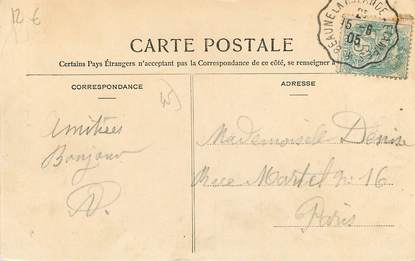 12 €
BEAUNE-LA-ROLANDE
15-6
05
CARTE POSTALE
Certains Pays Étrangers n'acceptant pas la Correspondance de ce côté, se renseigner à
CORRESPONDANCE
ADRESSE
Amitiées
Bonjour
Mademoiselle Denise
Rue Martel n° 16
Paris